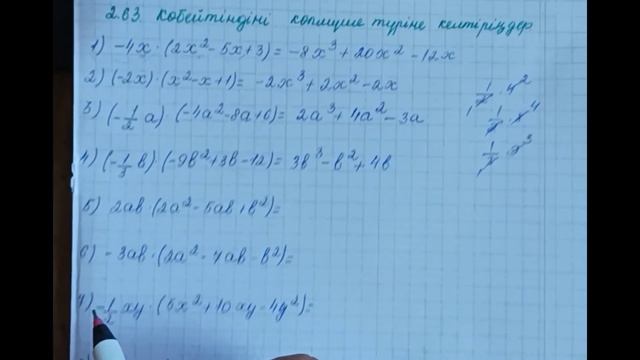 2.63 Көбейтіндіні көпмүше түріне келтіріңдер
1) -4x·(2x²-5x+3)= -8x³+20x²-12x
2) (-2x)·(x²-x+1)= -2x³+2x²-2x
3) (-1/2 a)·(-4a²-8a+6)= 2a³+4a²-3a
4) (-1/3 b)·(-9b²+3b-12)= 3b³-b²+4b
5) 2ab·(2a²-5ab+b²)=
6) -3ab·(2a²-4ab-b²)=
7) xy·(5x²+10xy-4y²)=